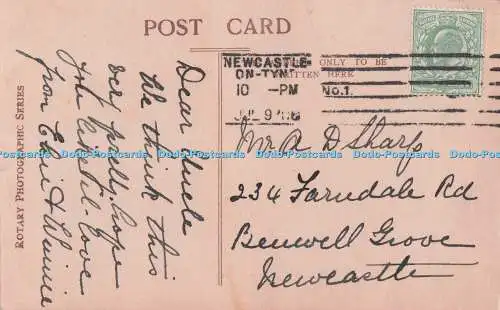 POST CARD
ONLY TO BE
WRITTEN HERE
NEWCASTLE-
ON-TYNE
10 - PM
No.1.
JUL 9
Dear Uncle
We think this
very godly, hope
you like it. love
from Elsie & Winnie
Mr A D Sharp
234 Farndale Rd
Benwell Grove
Newcastle
ROTARY PHOTOGRAPHIC SERIES
Dodo-Postcards Dodo-Postcards Dodo-Postcards Dodo-Postcards Dodo-Postcards Dodo-Postcards